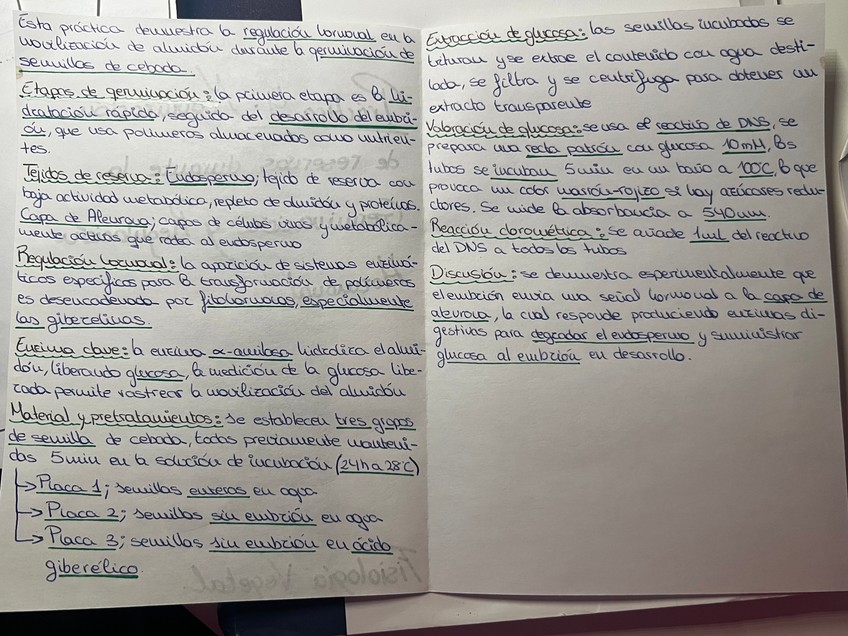 Esta práctica demuestra la regulación hormonal en la
movilización de almidón durante la germinación de
semillas de cebada.
Etapas de germinación: la primera etapa es la hi-
dratación rápida, seguida del desarrollo del embri-
ón, que usa polímeros almacenados como nutrien-
tes.
Tejidos de reserva: Endospermo; tejido de reserva con
baja actividad metabólica, repleto de almidón y proteínas.
Capa de Aleurona; capas de células vivas y metabólica-
mente activas que rodea al endospermo
Regulación hormonal: la aparición de sistemas enzimá-
ticos específicos para la transformación de polímeros
es desencadenada por fitohormonas, especialmente
las giberelinas.
Enzima clave: la enzima α-amilasa hidroliza el almi-
dón, liberando glucosa, la medición de la glucosa libe-
rada permite rastrear la movilización del almidón
Material y pretratamientos: se establecen tres grupos
de semilla de cebada, todas previamente manteni-
das 5min en la solución de incubación (24h a 28°C)
→ Placa 1; semillas enteras en agua
→ Placa 2; semillas sin embrión en agua
→ Placa 3; semillas sin embrión en ácido
giberélico.
Extracción de glucosa: las semillas incubadas se
trituran y se extrae el contenido con agua desti-
lada, se filtra y se centrifuga para obtener un
extracto transparente
Valoración de glucosa: se usa el reactivo de DNS, se
prepara una recta patrón con glucosa 10mM, los
tubos se incuban 5min en un baño a 100°C, lo que
provoca un color marrón-rojizo si hay azúcares reduc-
tores. Se mide la absorbancia a 540nm.
Reacción clorométrica: se añade 1ml del reactivo
del DNS a todos los tubos
Discusión: se demuestra experimentalmente que
el embrión envía una señal hormonal a la capa de
aleurona, la cual responde produciendo enzimas di-
gestivas para degradar el endospermo y suministrar
glucosa al embrión en desarrollo.
Fisiología Vegetal